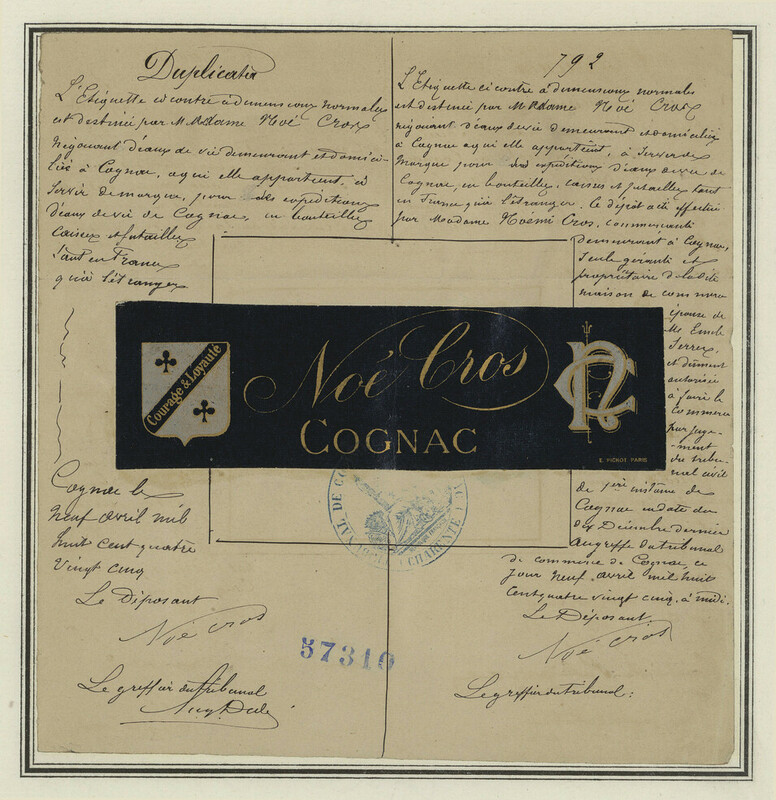 Duplicata
L'Etiquette ci contre à dimensions normales
est destinée par Madame Noé Cros
négociant d'eaux de vie demeurant et domici-
liée à Cognac, a qui elle appartient, à
servir de marque, pour des expéditions
d'eaux de vie de Cognac, en bouteilles
caisses et futailles
tant en France
qu'à l'étranger
Cognac le
neuf avril mil
huit cent quatre
vingt cinq
Le Déposant
Noé Cros
Le greffier du tribunal
792
L'Etiquette ci contre à dimensions normales
est destinée par Madame Noé Cros
négociant d'eaux de vie demeurant et domiciliée
à Cognac a qui elle appartient, à servir de
marque pour des expéditions d'eaux de vie de
Cognac, en bouteilles, caisses et futailles tant
en France qu'à l'étranger. Le dépôt a été effectué
par Madame Noémi Cros, commerçante
demeurant à Cognac,
seule gérante et
propriétaire de la dite
maison de commerce
épouse de
Emile
et dûment
autorisée
à faire le
commerce
par juge-
ment
du tribu-
nal civil
de 1ère instance de
Cognac en date du
dix Décembre dernier
au greffe du tribunal
de commerce de Cognac, ce
jour neuf avril mil huit
cent quatre vingt cinq, à midi.
Le Déposant
Noé Cros
Le greffier du tribunal:
Courage & Loyauté
Noé Cros
COGNAC
E. PICHOT PARIS
NC
CHARENTE
57310